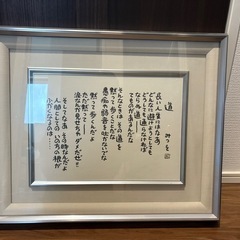 道
長い人生にはなあ
どんなに避けようとしても
どうしても通らなければ
ならぬ道―
てものがあるんだな
そんなときは その道を
黙って歩くことだな
愚痴や弱音を吐かないでな
黙って歩くんだよ
ただ黙って―
涙なんか見せちゃダメだぜ!!
そしてなあ その時なんだよ
人間としての いのちの根が
ふかくなるのは…
みつを